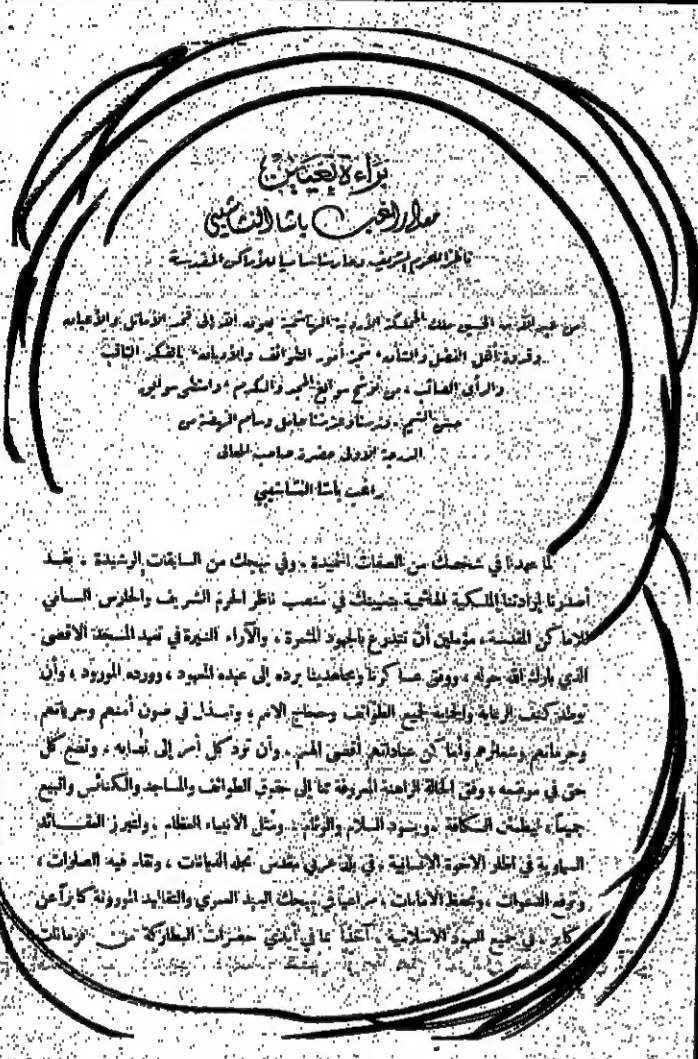 براءة تعيين
معالي راغب باشا النشاشيبي
ناظر الحرم الشريف وحارسا ساميا للأماكن المقدسة
من عبد الله بن الحسين ملك المملكة الأردنية الهاشمية بعونه الله إلى فخر الأماثل والأعيان
وقدوة أهل الفضل والشأن، أمور الطوائف والأديان، بالفكر الثاقب
والرأي الصائب، من توشح سوابغ المجد والكرم، وامتطى سوابق
الشيم، وسام النهضة من
الدرجة الأولى حضرة صاحب المعالي
راغب باشا النشاشيبي
لما عهدنا في شخصك من الصفات الحميدة، وفي نهجك من السابقات الرشيدة، فقد
أصدرنا إرادتنا الملكية الهاشمية بتعيينك في منصب ناظر الحرم الشريف والحارس السامي
للاماكن المقدسة، مؤملين أن تتذرع بالجهود المثمرة، والآراء النيرة في تعهد المسجد الاقصى
الذي بارك الله حوله، ووفق عساكرنا ومجاهدينا برده إلى عهده المعهود، وورده المورود، وأن
توطد كنف الرعاية والحماية لجميع الطوائف وحجاج الامم، وتبذل في صون أمنهم وحرياتهم
وحرماتهم وشعائرهم وأماكن عباداتهم أقصى الهمم، وأن ترد كل أمر إلى نصابه، وتضع كل
حق في موضعه، وفق الحالة الراهنة المعروفة مما إلى حقوق الطوائف والمساجد والكنائس والبيع
جميعاً، ليطمئن الكافة، ويسود السلام والوئام، ومثل الأنبياء العظام، ولتبرز العقائد
السماوية في اطار الاخوة الانسانية، في بلد عربي مقدس تمجد الديانات، وتقام فيه الصلوات،
وترفع الدعوات، وتحفظ الامانات، مراعياً في نهجك السوي والتقاليد الموروثة كابراً عن
كابر، في جميع العهود الاسلامية، آخذاً بما في أيدي حضرات البطاركة من فرمانات